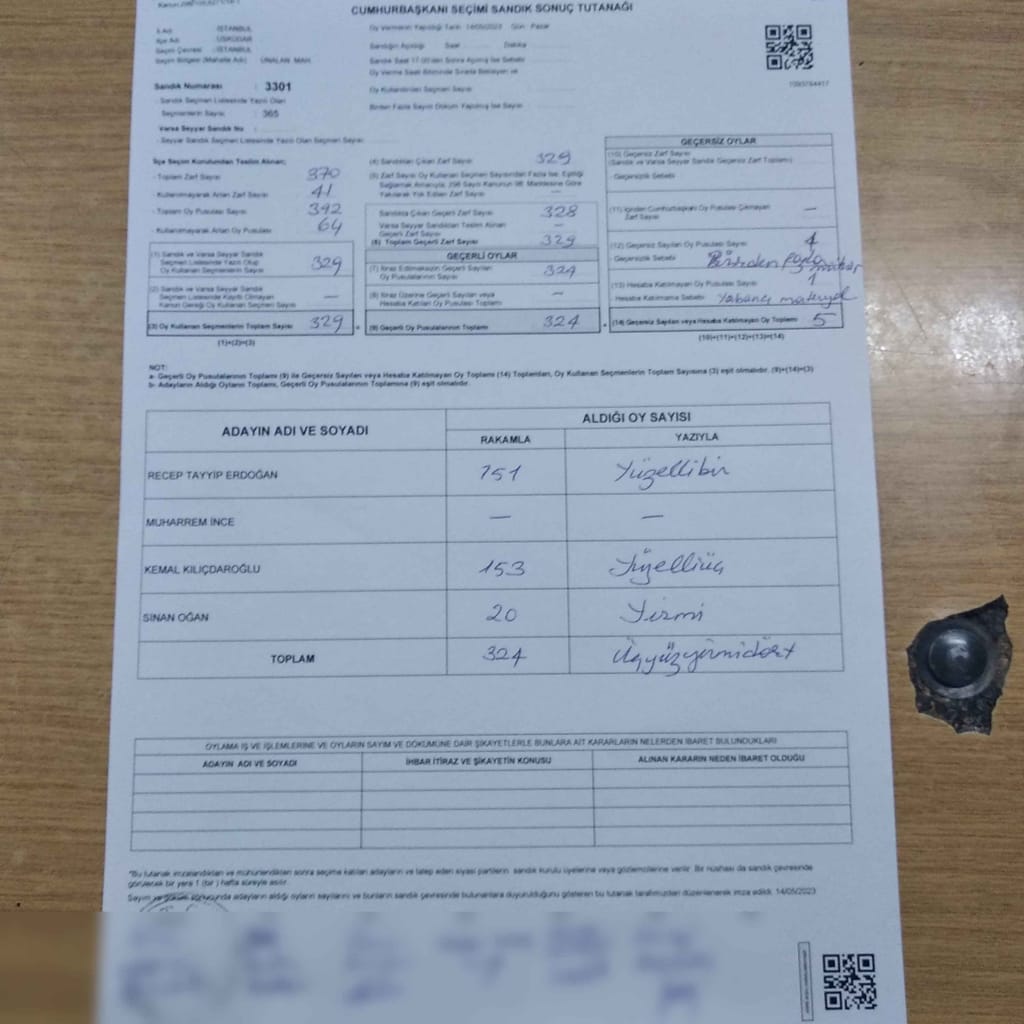 CUMHURBAŞKANI SEÇİMİ SANDIK SONUÇ TUTANAĞI
İli Adı : İSTANBUL
İlçe Adı : ÜSKÜDAR
Seçim Çevresi : İSTANBUL
Seçim Bölgesi (Mahalle Adı) ÜNALAN MAH.
Sandık Numarası : 3301
Sandık Seçmen Listesinde Yazılı Olan
Seçmenlerin Sayısı : 365
Varsa Seyyar Sandık No :
- Seyyar Sandık Seçmen Listesinde Yazılı Olan Seçmen Sayısı
Oy Vermenin Yapıldığı Tarih 14/05/2023 Gün Pazar
Sandığın Açıldığı Saat Dakika
Sandık Saat 17.00'den Sonra Açılmış İse Sebebi
Oy Verme Saati Bitiminde Sırada Bekleyen ve
Oy Kullandırılan Seçmen Sayısı
Birden Fazla Sayım Döküm Yapılmış İse Sayısı
İlçe Seçim Kurulundan Teslim Alınan;
- Toplam Zarf Sayısı 370
- Kullanılmayarak Artan Zarf Sayısı 41
- Toplam Oy Pusulası Sayısı 392
- Kullanılmayarak Artan Oy Pusulası 64
(1) Sandık ve Varsa Seyyar Sandık
Seçmen Listesinde Yazılı Olup
Oy Kullanan Seçmenlerin Sayısı 329
(2) Sandık ve Varsa Seyyar Sandık
Seçmen Listesinde Kayıtlı Olmayan
Kanun Gereği Oy Kullanan Seçmen Sayısı —
(3) Oy Kullanan Seçmenlerin Toplam Sayısı 329
(1)+(2)=(3)
(4) Sandıktan Çıkan Zarf Sayısı 329
(5) Zarf Sayısı Oy Kullanan Seçmen Sayısından Fazla İse, Eşitliği
Sağlamak Amacıyla, 298 Sayılı Kanunun 98. Maddesine Göre
Yakılarak Yok Edilen Zarf Sayısı —
Sandıkta Çıkan Geçerli Zarf Sayısı 328
Varsa Seyyar Sandıktan Teslim Alınan
Geçerli Zarf Sayısı —
(6) Toplam Geçerli Zarf Sayısı 329
GEÇERLİ OYLAR
(7) İtiraz Edilmeksizin Geçerli Sayılan
Oy Pusulalarının Sayısı 324
(8) İtiraz Üzerine Geçerli Sayılan veya
Hesaba Katılan Oy Pusulası Toplamı —
(9) Geçerli Oy Pusulalarının Toplamı 324
GEÇERSİZ OYLAR
(10) Geçersiz Zarf Sayısı
(Sandık ve Varsa Seyyar Sandık Geçersiz Zarf Toplamı)
- Geçersizlik Sebebi
(11) İçinden Cumhurbaşkanı Oy Pusulası Çıkmayan
Zarf Sayısı —
(12) Geçersiz Sayılan Oy Pusulası Sayısı 4
- Geçersizlik Sebebi Birden fazla mühür
(13) Hesaba Katılmayan Oy Pusulası Sayısı 1
Hesaba Katılmama Sebebi Yabancı materyal
(14) Geçersiz Sayılan veya Hesaba Katılmayan Oy Toplamı 5
(10)+(11)+(12)+(13)=(14)
NOT:
a- Geçerli Oy Pusulalarının Toplamı (9) ile Geçersiz Sayılan veya Hesaba Katılmayan Oy Toplamı (14) Toplamları, Oy Kullanan Seçmenlerin Toplam Sayısına (3) eşit olmalıdır. (9)+(14)=(3)
b- Adayların Aldığı Oyların Toplamı, Geçerli Oy Pusulalarının Toplamına (9) eşit olmalıdır.
ADAYIN ADI VE SOYADI ALDIĞI OY SAYISI
RAKAMLA YAZIYLA
RECEP TAYYİP ERDOĞAN 151 Yüzellibir
MUHARREM İNCE — —
KEMAL KILIÇDAROĞLU 153 Yüzelliüç
SİNAN OĞAN 20 Yirmi
TOPLAM 324 Üçyüzyirmidört
OYLAMA İŞ VE İŞLEMLERİNE VE OYLARIN SAYIM VE DÖKÜMÜNE DAİR ŞİKAYETLERLE BUNLARA AİT KARARLARIN NELERDEN İBARET BULUNDUKLARI
ADAYIN ADI VE SOYADI İHBAR İTİRAZ VE ŞİKAYETİN KONUSU ALINAN KARARIN NEDEN İBARET OLDUĞU
*Bu tutanak imzalandıktan ve mühürlendikten sonra seçime katılan adayların ve talep eden siyasi partilerin sandık kurulu üyelerine veya gözlemcilerine verilir. Bir nüshası da sandık çevresinde
görülecek bir yere 1 (bir) hafta süreyle asılır.
Sayım ve döküm sonucunda adayların aldığı oyların sayılarını ve bunların sandık çevresinde bulunanlara duyurulduğunu gösteren bu tutanak tarafımızdan düzenlenerek imza edildi. 14/05/2023